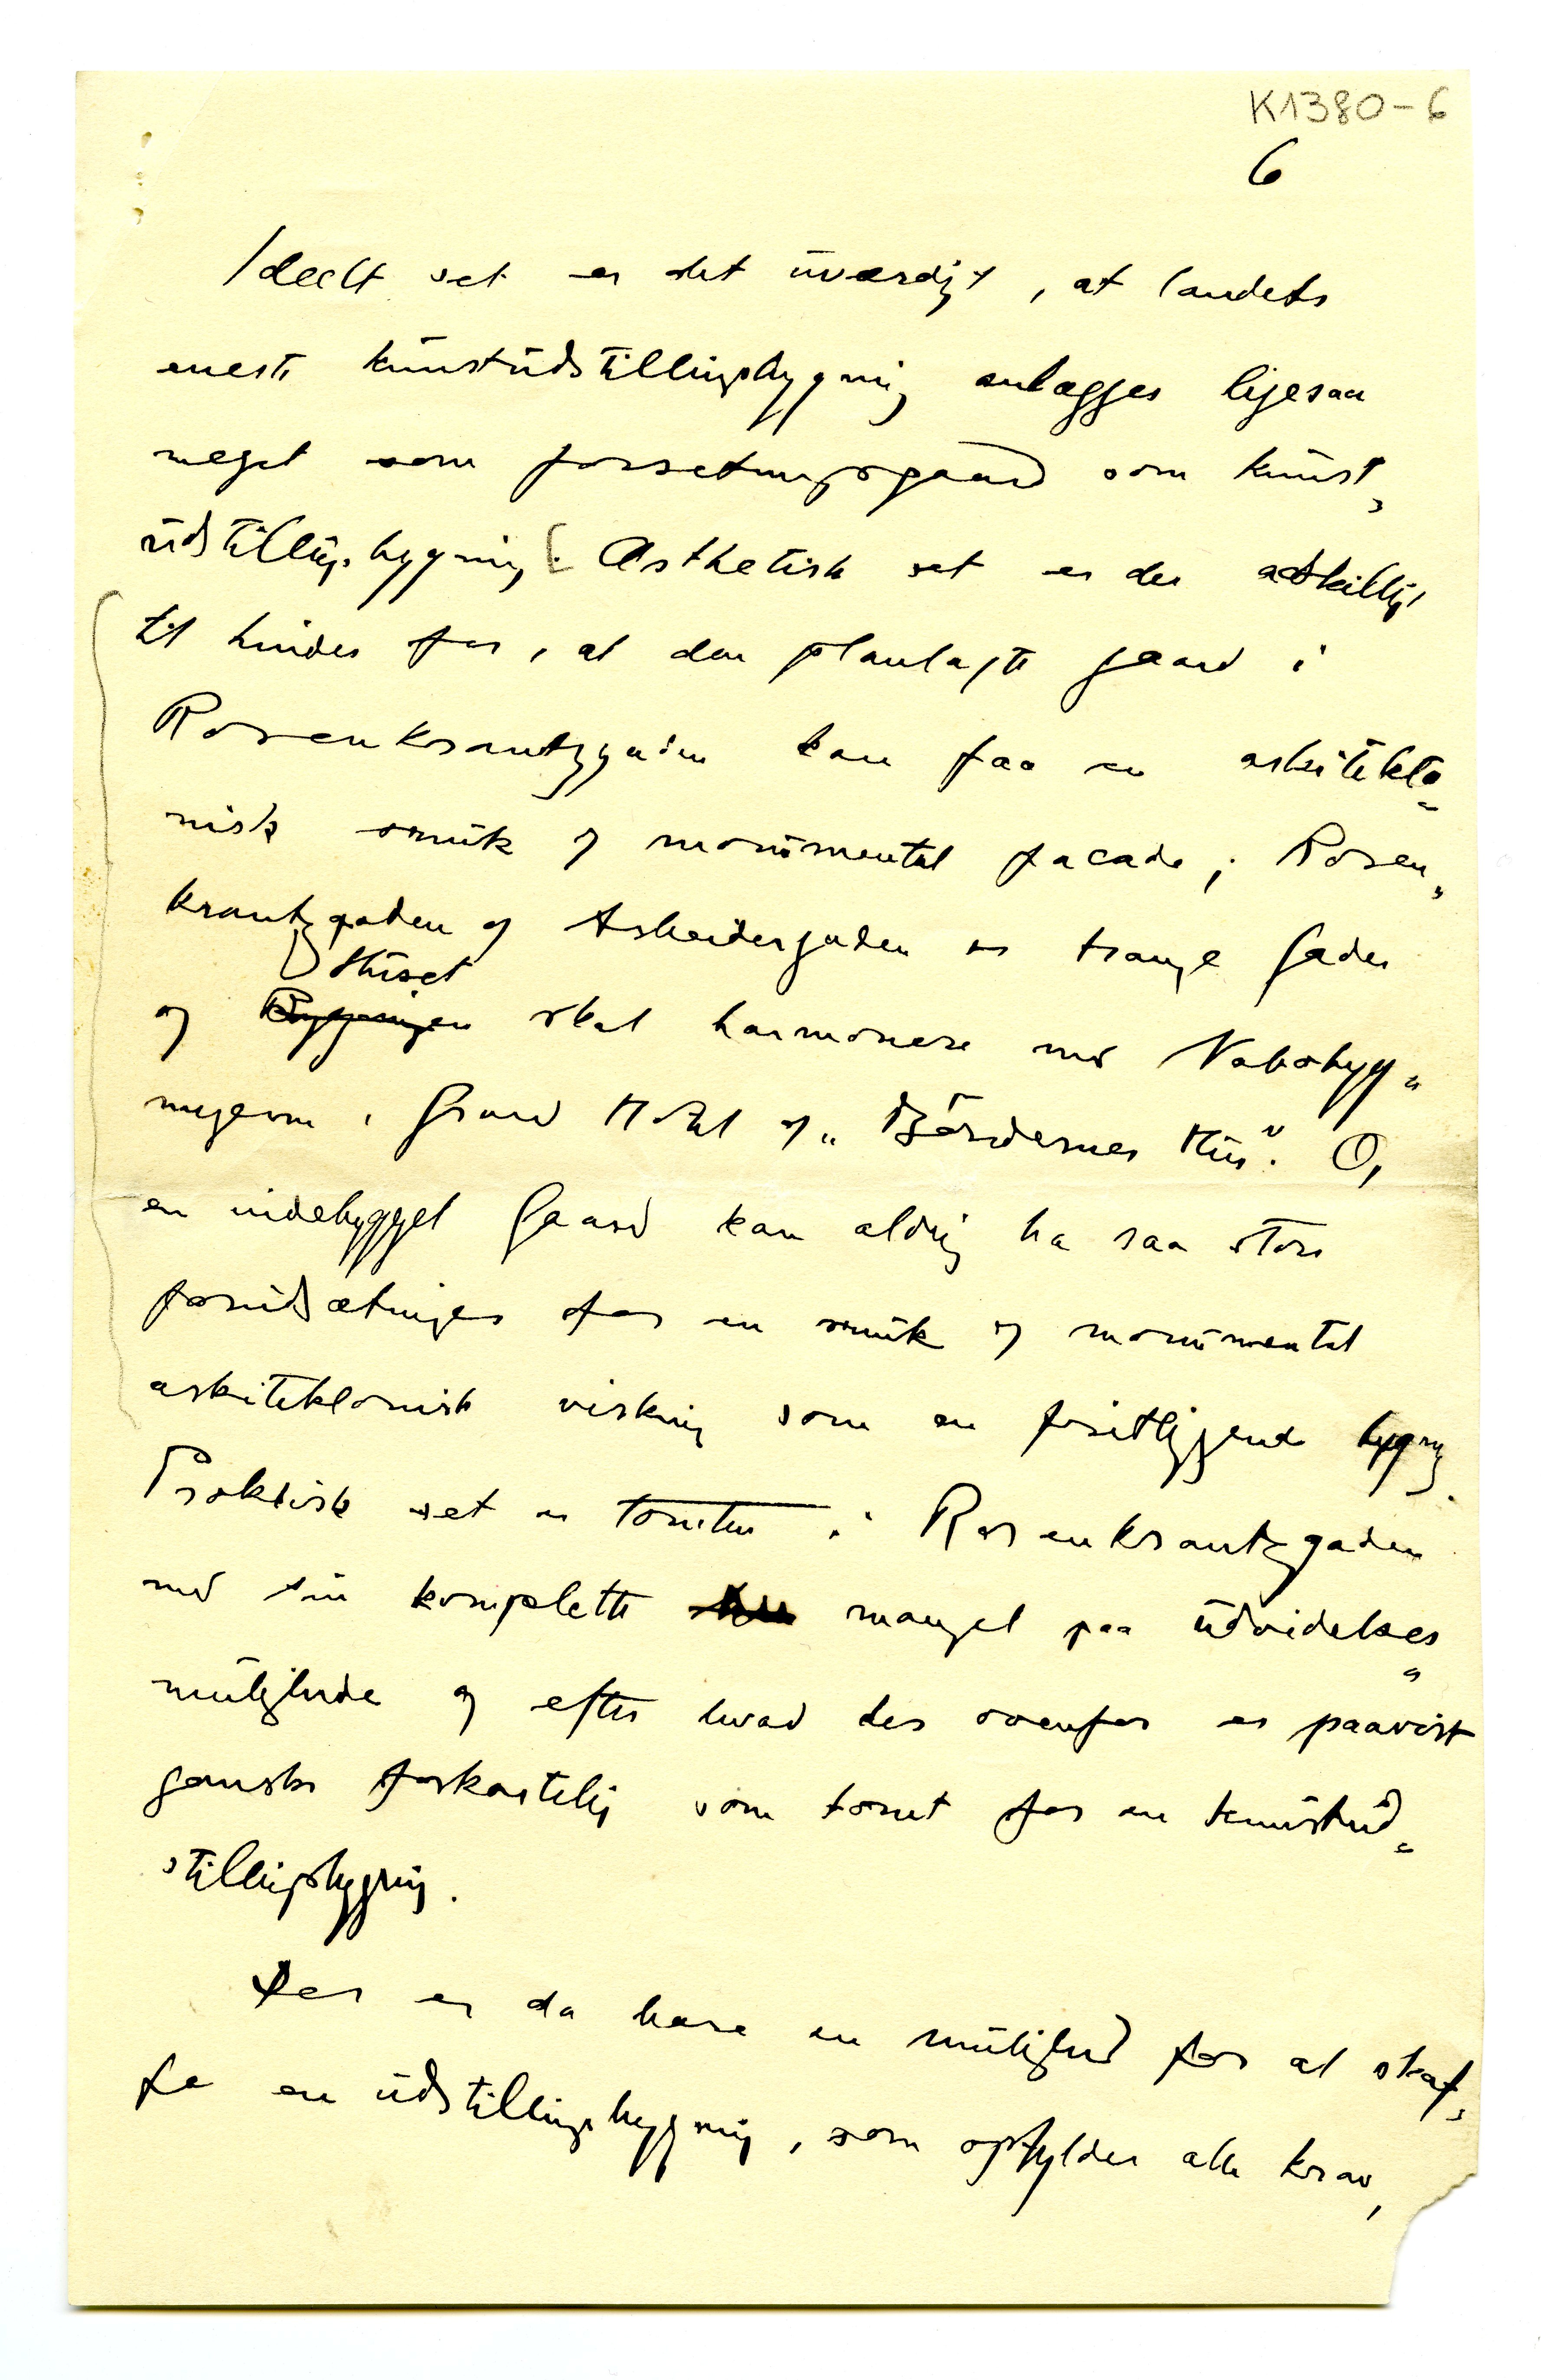 K1380-6
6
Ideelt set er det uværdigt, at landets
eneste kunstudstillingsbygning anlægges ligesaa
meget som forretningsgaard som kunst-
udstillingsbygning. Æsthetisk set er der adskilligt
til hinder for, at den planlagte gaard i
Rosenkrantzgaden kan faa en arkitekto-
nisk smuk og monumental facade; Rosen-
krantzgaden og Arbeidergaden er trange Gader
Huset
og Bygningen skal harmonere med Nabobyg-
ningerne, Grand Hotel og "Bøndernes Hus". Og
en indebygget Gaard kan aldrig ha saa store
forudsætninger for en smuk og monumental
arkitektonisk virkning som en fritliggende bygning.
Praktisk set er tomten i Rosenkrantzgaden
med sin komplette mangel paa udvidelses-
mulighede og efter hvad der ovenfor er paavist
ganske forkastelig som tomt for en kunstud-
stillingsbygning.
Der er da bare en mulighed for at skaf-
fe en udstillingsbygning, som opfylder alle krav,